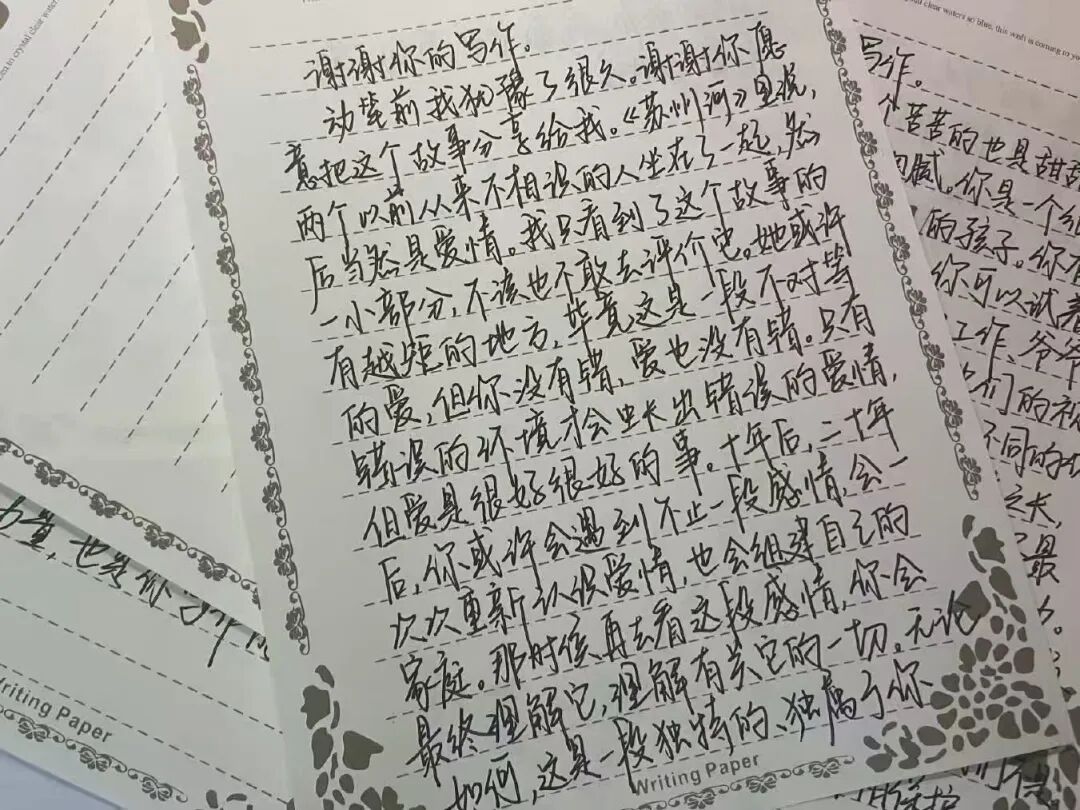 to crystal clear waters
clear waters so blue, this wish is coming to yo
谢谢你的写作。
动笔前我犹豫了很久。谢谢你愿
意把这个故事分享给我。《苏州河》里说，
两个以前从来不相识的人坐在了一起，然
后当然是爱情。我只看到了这个故事的
一小部分，不该也不敢去评价它。她或许
有越矩的地方，毕竟这是一段不对等
的爱，但你没有错，爱也没有错。只有
错误的环境才会生长出错误的爱情，
但爱是很好很好的事。十年后，二十年
后，你或许会遇到不止一段感情，会一
次次重新认识爱情，也会组建自己的
家庭。那时候再去看这段感情，你会
最终理解它，理解有关它的一切。无论
如何，这是一段独特的、独属于你
Writing Paper
写作。
个苦苦的也是甜甜
腻。你是一个细
的孩子。你有
你可以试着
工作、爷爷
们的祝
不同的地
之长，
最
也终你
Writing Paper